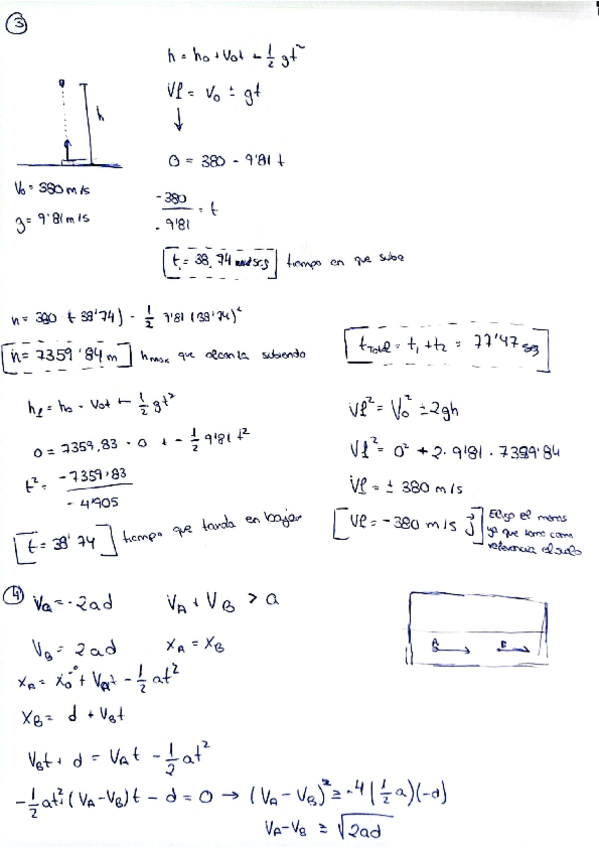 3
h = h0 + V0t - 1/2 gt²
Vf = V0 ± gt
h
↓
0 = 380 - 9'81 t
V0 = 380 m/s
g = 9'81 m/s
-380 / -9'81 = t
t1 = 38,74 seg tiempo en que sube
h = 380 (38'74) - 1/2 9'81 (38'74)²
h = 7359'84 m hmax que alcanza subiendo
tTotal = t1 + t2 = 77'47 seg
hf = h0 - V0t - 1/2 gt²
0 = 7359,83 - 0 t - 1/2 9'81 t²
t² = -7359,83 / -4'905
t = 38'74 tiempo que tarda en bajar
Vf² = V0² ± 2gh
Vf² = 0² + 2 · 9'81 · 7359'84
Vf = ± 380 m/s
Vf = -380 m/s j Elijo el menos
ya que tomo como
referencia el suelo
4
VA = -2ad VA + VB > a
VB = 2ad XA = XB
A B
XA = X0 + VAt - 1/2 at²
XB = d + VBt
VBt + d = VAt - 1/2 at²
-1/2 at² + (VA - VB)t - d = 0 → (VA - VB)² ≥ -4 (1/2 a)(-d)
VA - VB ≥ √2ad